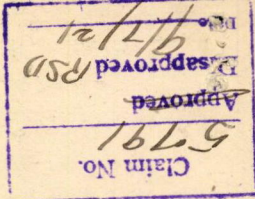 Claim No.
5791
Approved
Disapproved RSD
9/7/21